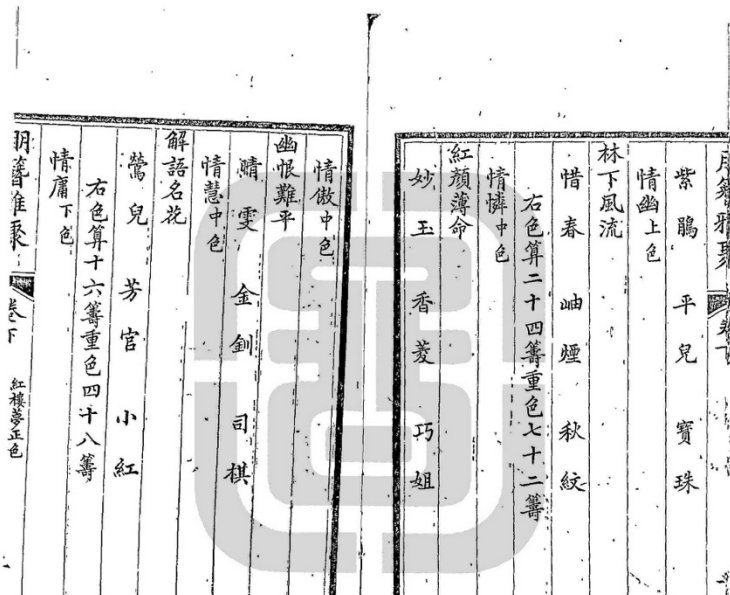 朋簪雅聚
卷下
紫鵑 平兒 寶珠
情幽上色
林下風流
惜春 岫煙 秋紋
右色算二十四籌重色七十二籌
情憐中色
紅顏薄命
妙玉 香菱 巧姐
情傲中色
幽恨難平
晴雯 金釧 司棋
情慧中色
解語名花
鶯兒 芳官 小紅
右色算十六籌重色四十八籌
情庸下色
朋簪雅聚
卷下
紅樓夢正色